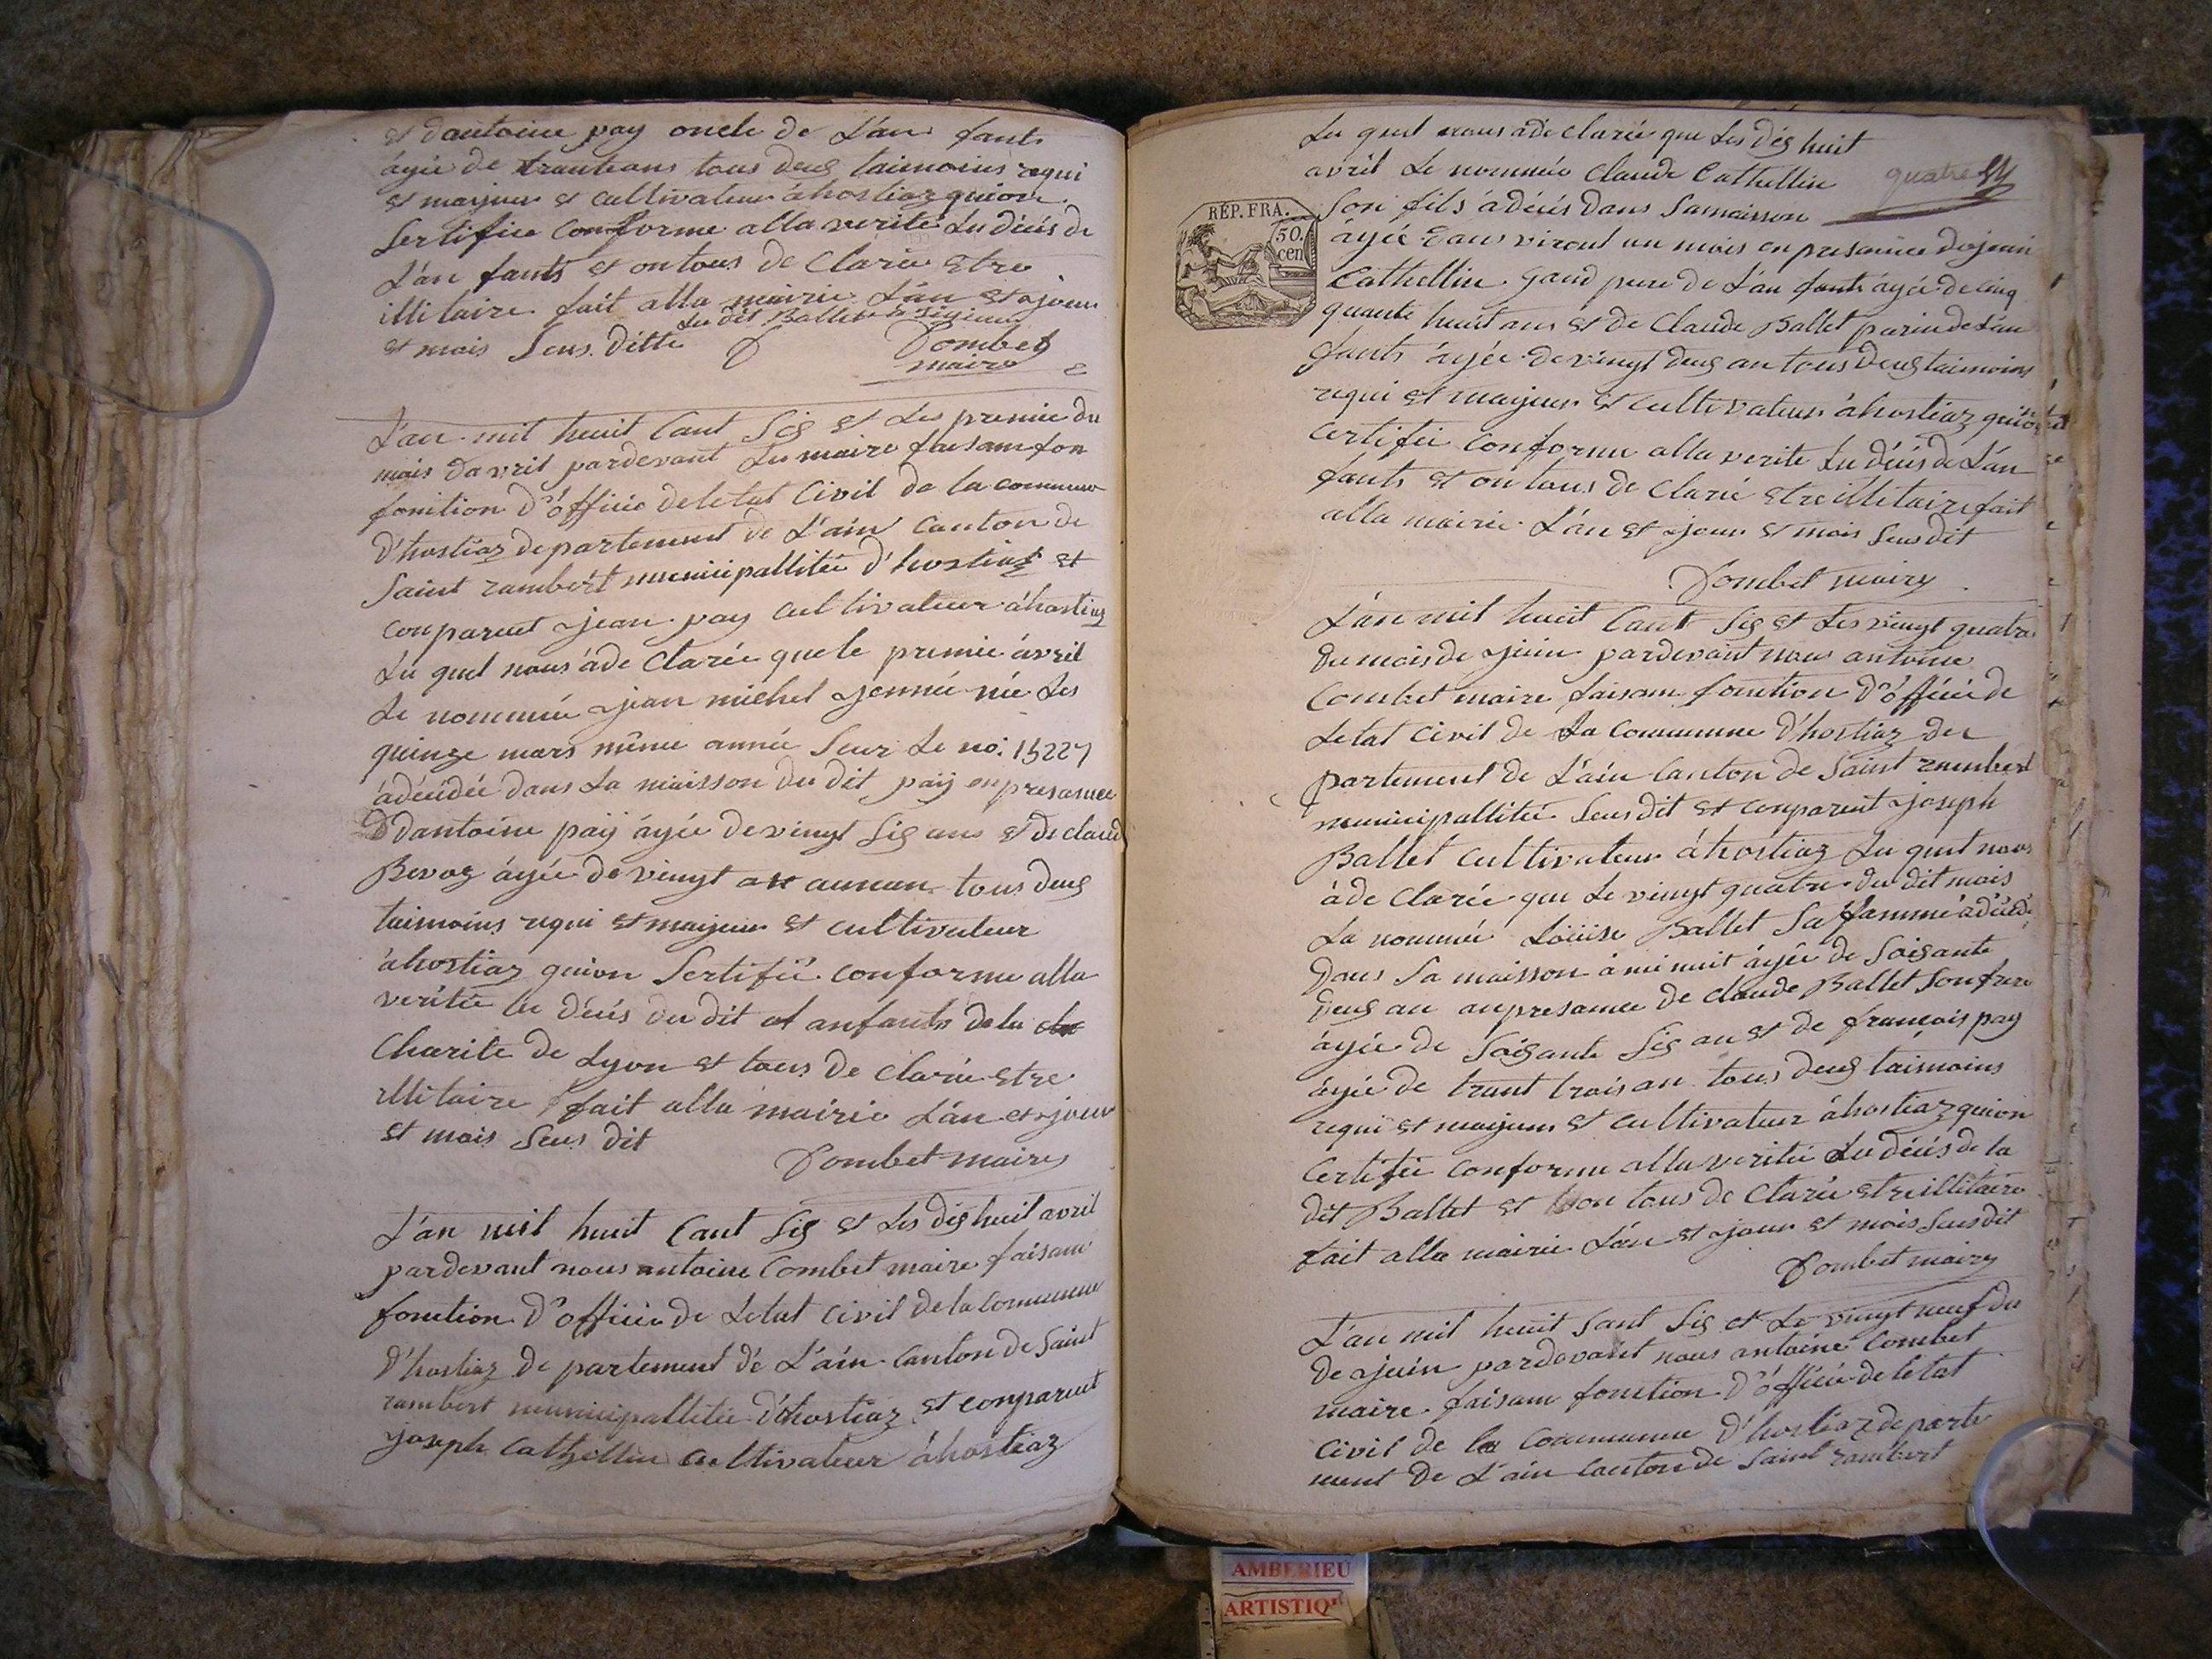 et dantoine pay oncle de L'an fants
âgée de trauteans tous deus taimoins requi
et majeur et cultivateur àhostiaz quion
Sertifiee Conforme alla verité Lu décés de
L'an fants et on tous de Clarée etre
illitaire fait alla mairie L'an et ajour
et mois Seus. ditte Lu dit Ballet a Signeur
Combet
maire
L'an mil huit Cant Sis et Les premie du
mois davril pardevant Lu maire faisam fon
fonition D'óffiçié deletat Civil de la commune
D'hostiaz departement de L'ain Canton de
Saint rambert municipallitée d'hostiaz et
conparent jean pay cultivateur àhostiaz
Lu quel nous àde Clarée que le premie àvril
Le nommée jean michel jennée née Les
quinze mars même année Seur Le no. 15227
àdécidée dans La maisson du dit pay enpresance
Ddantoine pay àgée de vingt Sis ans et de claude
Bevoz àgée de vingt an tous deus
taimoins requi et majeur et cultivateur
àhostiaz quion Sertifié conforme alla
veritée lu décés du dit anfants de la
Charite de Lyon et tous de Clarée etre
illitaire fait alla mairie L'an et jour
et mois Seus dit
Combet maire
L'an mil huit Cant Sis et Les dis huit avril
pardevant nous antoine Combet maire faisam
fonition D'officie de Letat Civil de la Commune
D'hostiaz de partement dé L'ain Canton de Saint
rambert municipallitée d'hostiaz et conparent
joseph Cathellin Cultivateur àhostiaz
Lu quel nous àde clarée que Les dis huit
avril Le nommée Claude Cathellin
quatre
Son fils àdécés Dans Samaisson
RÉP. FRA.
50.
cen
àgée Dans viront un mois en presance dejean
Cathellin Gand pere de L'an fants àgée de cinq
quante huit ans et de Claude Ballet parin de L'an
fants àgée de vingt deus an tous deus taimoins
requi et majeur et cultivateur àhostiaz quion
Certifée conforme alla verite Lu décés de L'an
fants et on tous de Clarié etre illitaire fait
alla mairie L'an et jour et mois Seus dit
Combet mairy
L'an mil huit Cant Sis et Les vingt quatre
Du mois de juin pardevant nous antoine
Combet maire faisam fonition D'óffiçié de
Letat Civil de La Commune D'hostiaz de
partement de L'ain Canton de Saint rambert
municipallitée Seus dit et conparent joseph
Ballet cultivateur àhostiaz Lu quel nous
àde Clarée que Le vingt quatre du dit mois
La nommée Loüise Ballet Sa famme àdécédé
Dans Sa maisson à minuit àgée de Soisante
deus an anpresance de claude Ballet Son frere
àgée de Soisante Sis an et de francois pay
àgée de trant trois an tous deus taimoins
requi et majeur et cultivateur àhostiaz quion
Certifée Conforme alla veritée Lu décés de la
dit Ballet et on tous de Clarée etre illitaire
fait alla mairie L'an et jour et mois Seus dit
Combet mairy
L'an mil huit Sant Sis et Le vingt neuf du
De juin pardevant nous antoine Combet
maire faisam fonition D'officié de letat
Civil de la Commune D'hostiaz departe
ment de L'ain Canton de Saint rambert
AMBERIEU
ARTISTIQ'